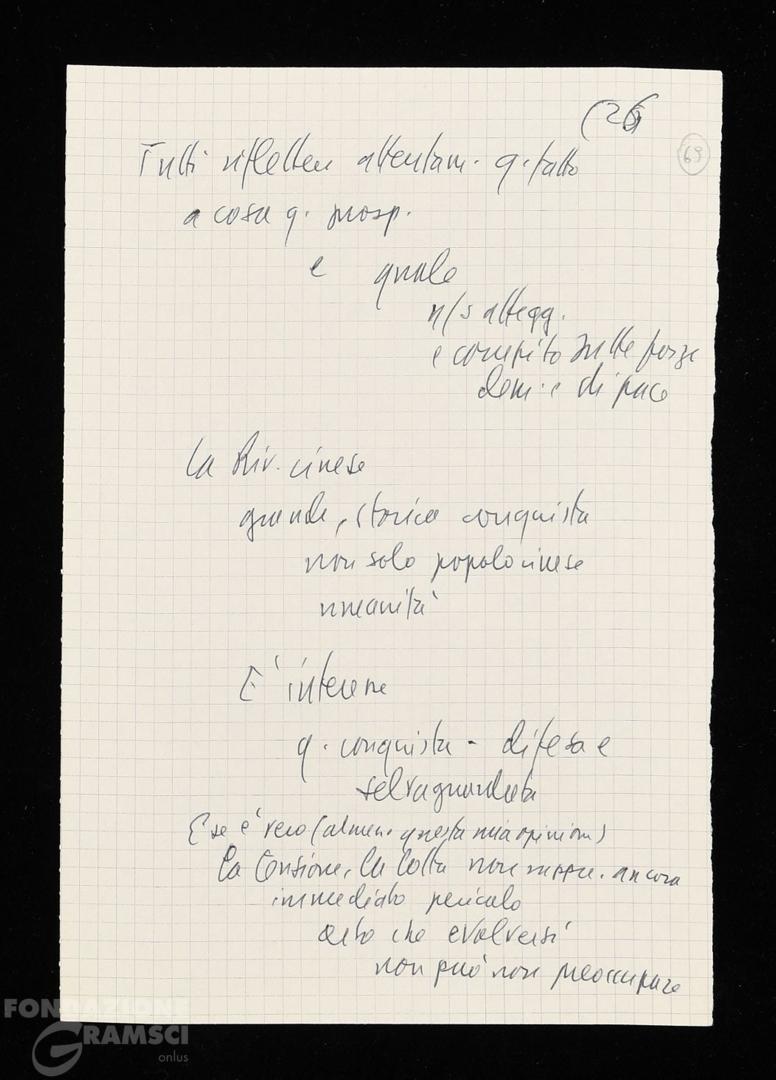 (26
69
Tutti riflettere attentam. q. fatto
a cosa q. prosp.
e quale
n/s attegg.
e compito sulle forze
dem. e di pace
la Riv. cinese
grande, storica conquista
non solo popolo cinese
umanità
E' interesse
q. conquista - difesa e
salvaguardata
E se è vero (almeno questa mia opinione)
la tensione, la lotta non rappr. ancora
immediato pericolo
certo che evolversi
non può non preoccupare
FONDAZIONE
GRAMSCI
onlus